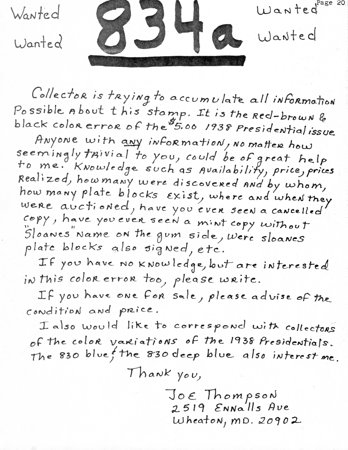 Page 20
Wanted 834a Wanted
Wanted Wanted
Collector is trying to accumulate all information
Possible About this stamp. It is the red-brown &
black color error of the $5.00 1938 Presidential issue
Anyone with any information, no matter how
seemingly trivial to you, could be of great help
to me. Knowledge such as Availability, price, prices
Realized, how many were discovered And by whom,
how many plate blocks exist, where and when they
were auctioned, have you ever seen a cancelled
copy, have you ever seen a mint copy without
"Sloanes" name on the gum side, were sloanes
plate blocks also signed, etc.
If you have no knowledge, but are interested
in this color error too, please write.
If you have one for sale, please advise of the
condition and price.
I also would like to correspond with collectors
of the color variations of the 1938 Presidentials.
The 830 blue, & the 830 deep blue also interest me.
Thank you,
Joe Thompson
2519 Ennalls Ave
Wheaton, MD. 20902